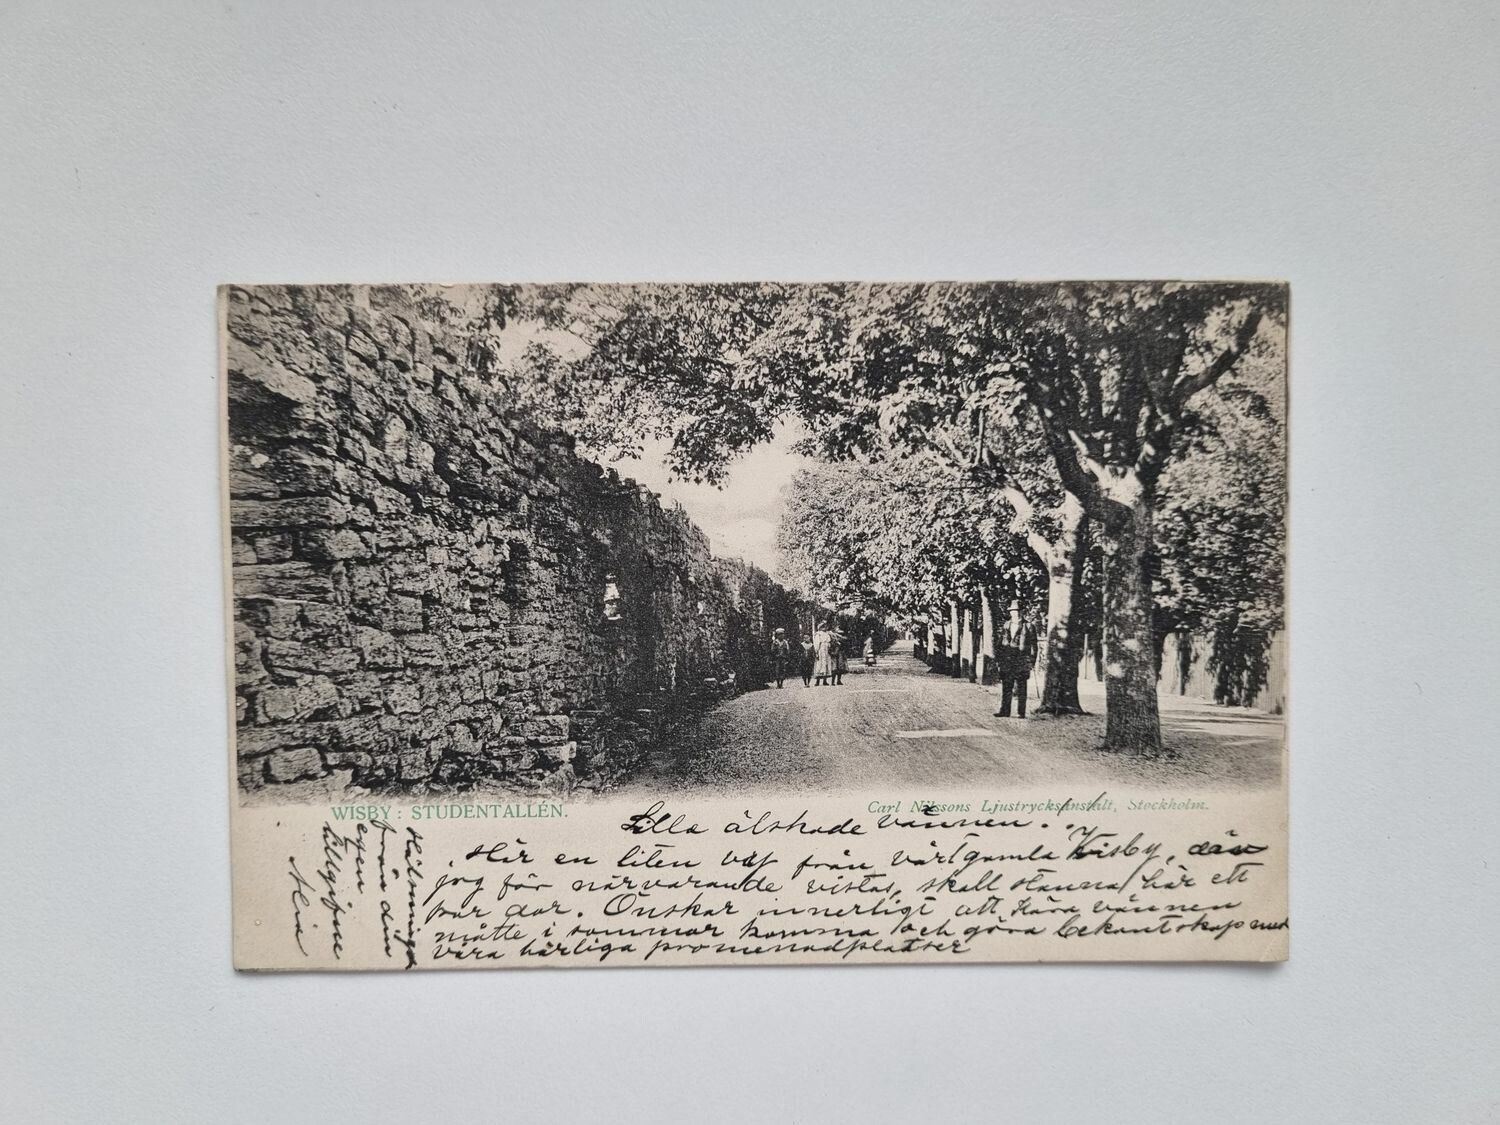 WISBY: STUDENTALLÉN.
Carl Nilssons Ljustrycksanstalt, Stockholm.
Lilla älskade vännen!
Här en liten vy från vårt gamla Wisby, där
jag för närvarande vistas, skall stanna här ett
par dar. Önskar innerligt att Kära vännen
måtte i sommar komma och göra bekantskap med
våra härliga promenadplatser
Hälsningar
från din
egen
tillgifne
Mia